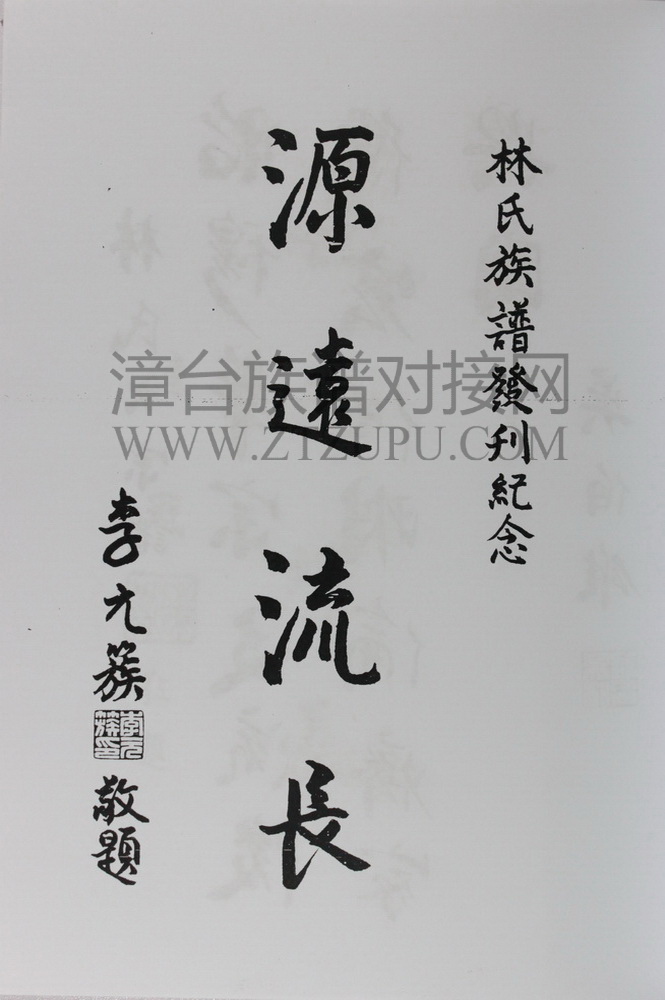 林氏族譜發刊紀念
源遠流長
李元簇
李元簇印
敬題
漳台族谱对接网
WWW.ZTZUPU.COM